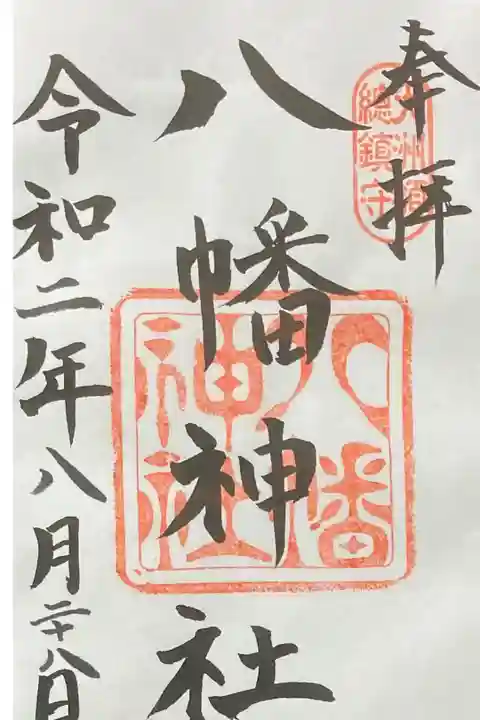 奉拝
總鎮守
八幡神社
八幡神社
令和二年八月二十八日